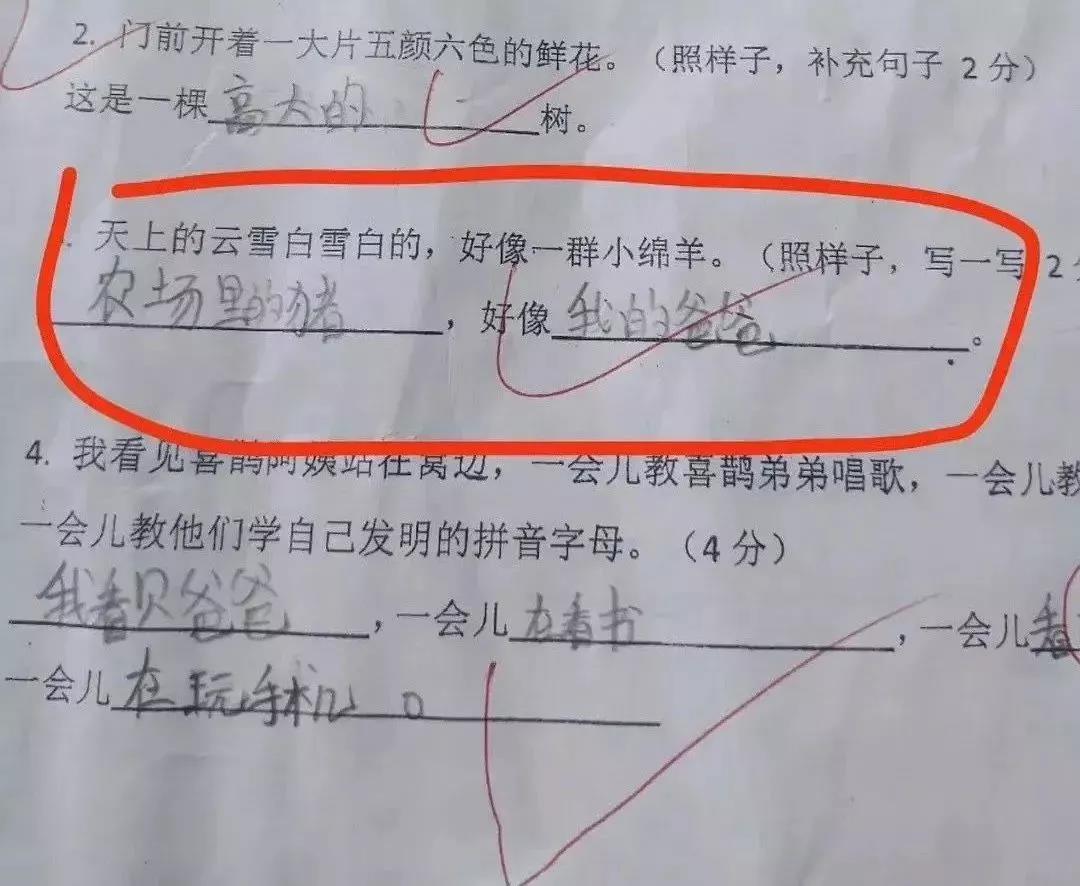 2. 门前开着一大片五颜六色的鲜花。（照样子，补充句子 2分）
这是一棵高大的树。
天上的云雪白雪白的，好像一群小绵羊。（照样子，写一写 2
农场里的猪，好像我的爸爸。
4. 我看见喜鹊阿姨站在窝边，一会儿教喜鹊弟弟唱歌，一会儿教
一会儿教他们学自己发明的拼音字母。（4分）
我看贝爸爸，一会儿在看书，一会儿看
一会儿在玩手机。